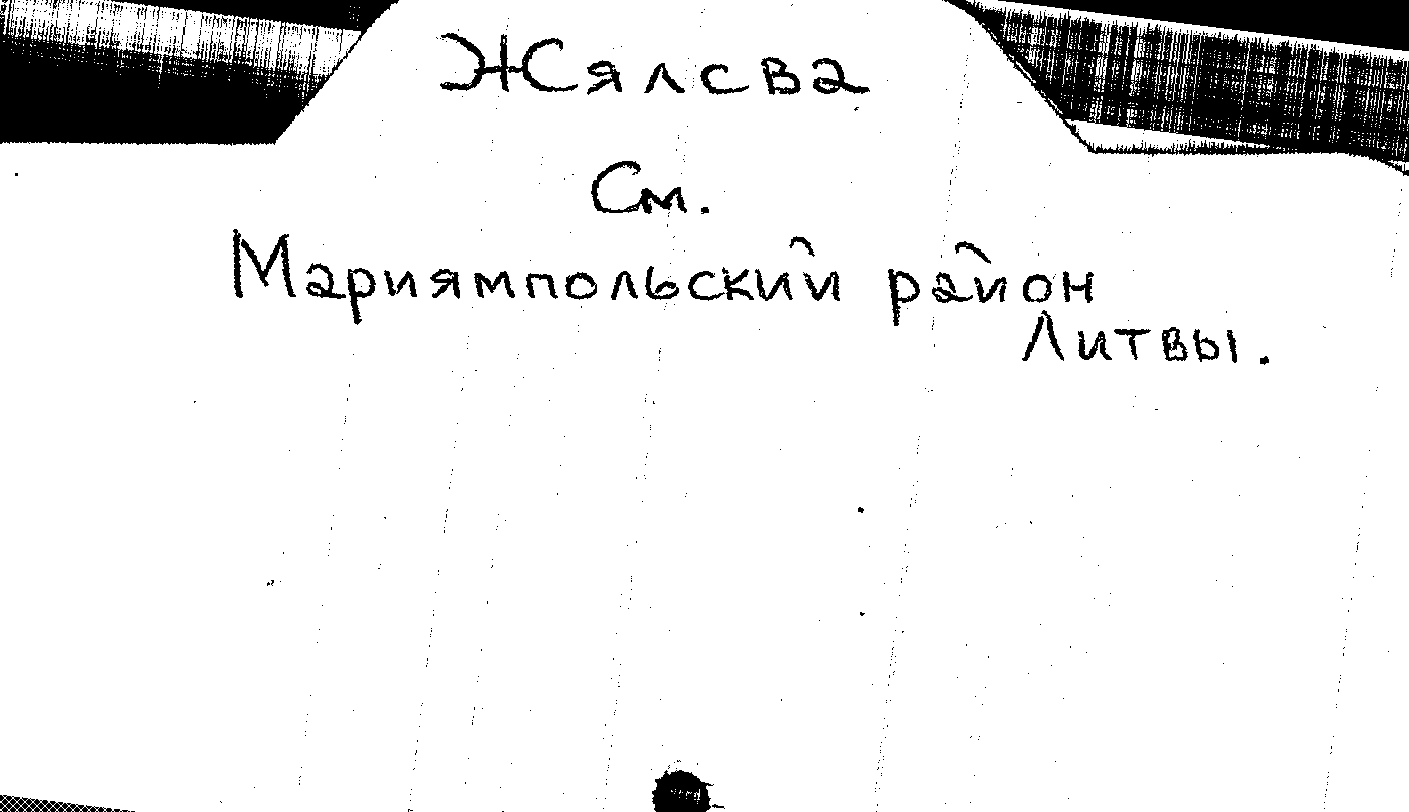 Жялсва
См.
Мариямпольский район
Литвы.